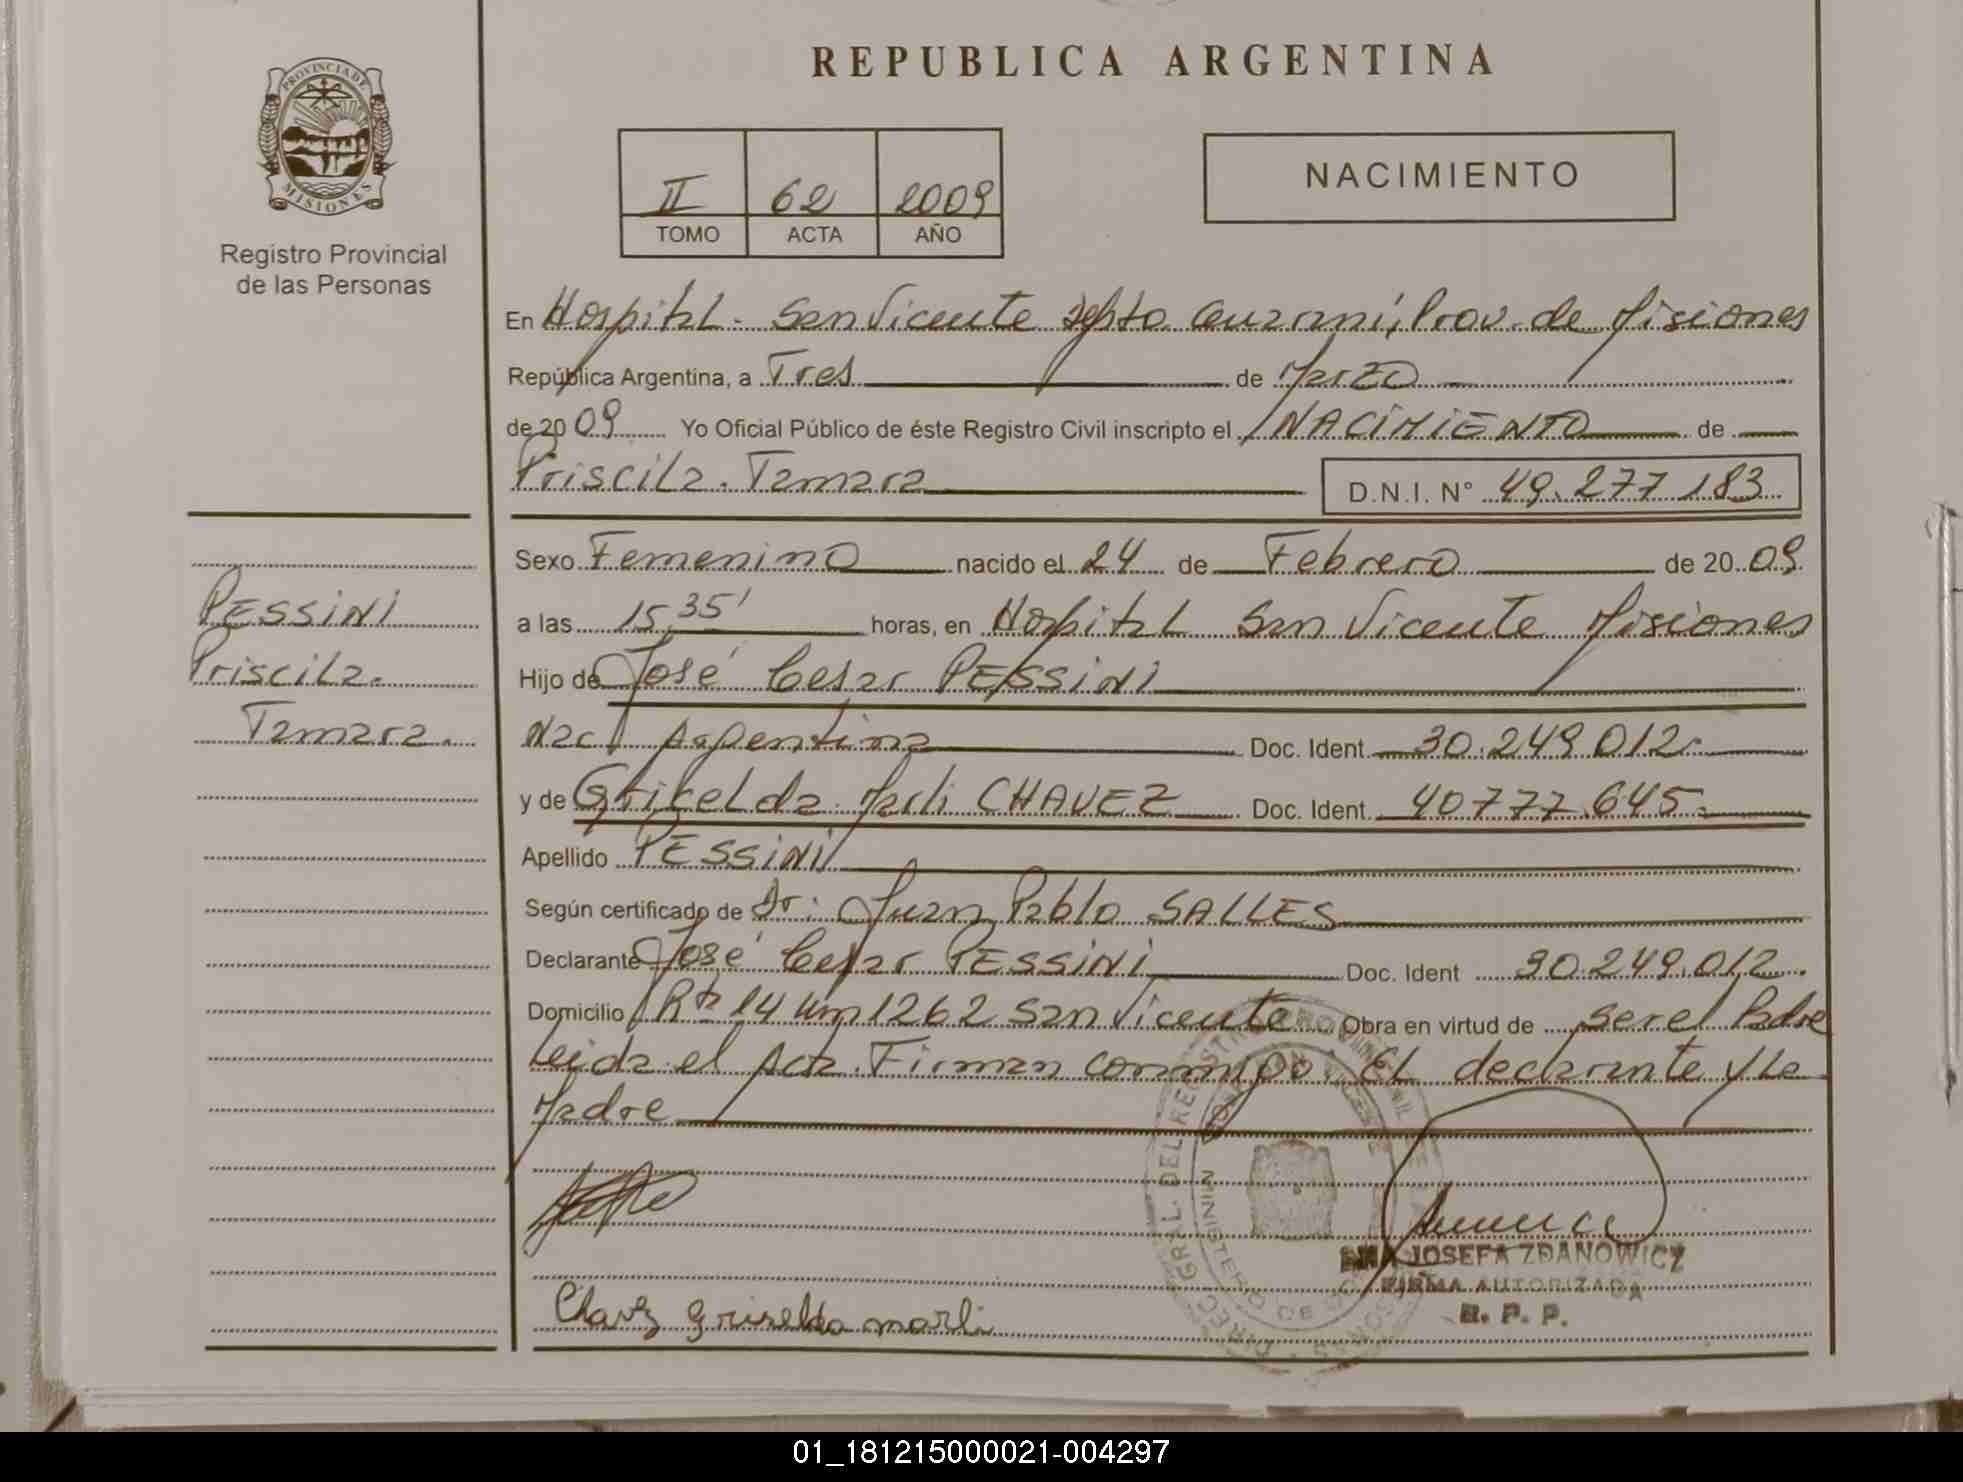 REPUBLICA ARGENTINA
PROVINCIA DE
MISIONES
Registro Provincial
de las Personas
II 62 2009
TOMO ACTA AÑO
NACIMIENTO
En Hospital. San Vicente Depto Guaraní, Prov. de Misiones
República Argentina, a Tres de Marzo
de 2009 Yo Oficial Público de éste Registro Civil inscripto el NACIMIENTO de
Priscila. Tamara D.N.I. N° 49.277.183
Sexo Femenino nacido el 24 de Febrero de 2009
a las 15,35' horas, en Hospital San Vicente Misiones
Hijo de José Cesar PESSINI
Nac. Argentina Doc. Ident. 30.249.012.
y de Griselda Marli CHAVEZ Doc. Ident. 40.777.645.
Apellido PESSINI
Según certificado de Dr: Juan Pablo SALLES
Declarante José Cesar PESSINI Doc. Ident 30.249.012.
Domicilio Rta 14 km 1262 San Vicente Obra en virtud de ser el Padre
leida el Acta. Firman conmigo. El declarante y la
Madre
PESSINI
Priscila.
Tamara.
ANA JOSEFA ZDANOWICZ
FIRMA AUTORIZADA
R. P. P.
Chavz griselda marli
01_181215000021-004297